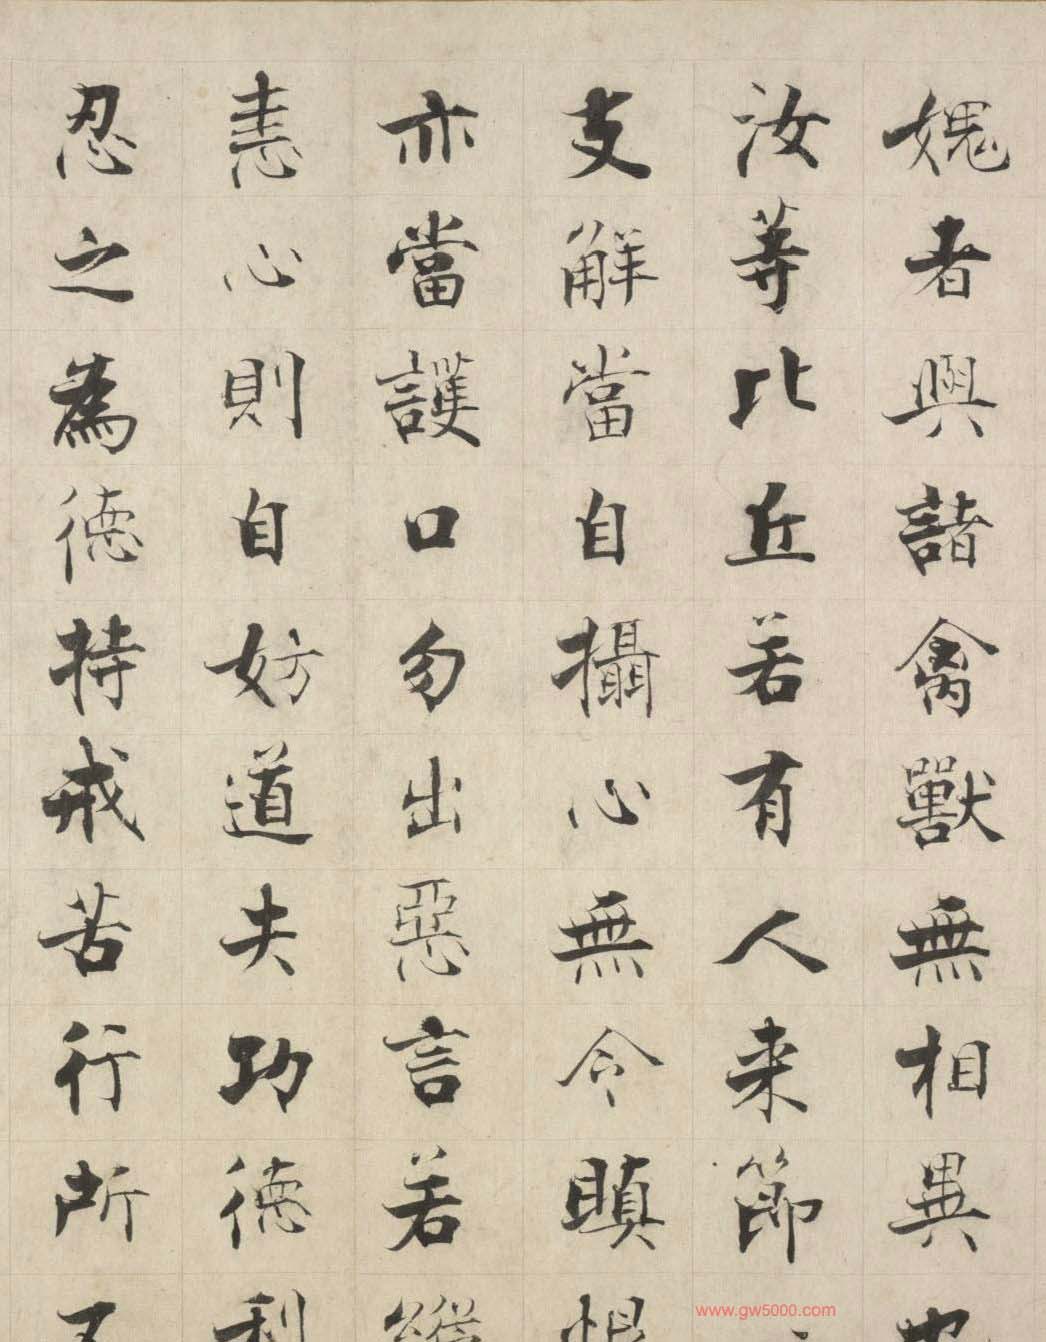 媿者與諸禽獸無相異也
汝等比丘若有人来節
支解當自攝心無令瞋恨
亦當護口勿出惡言若縱
恚心則自妨道失功德利
忍之為德持戒苦行所
www.gw5000.com